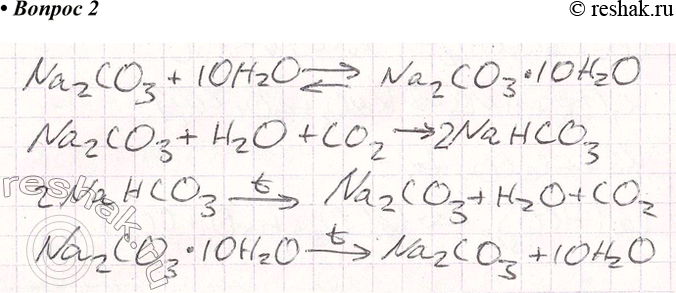 • Вопрос 2
© reshak.ru
Na₂CO₃ + 10H₂O ⇌ Na₂CO₃·10H₂O
Na₂CO₃ + H₂O + CO₂ → 2NaHCO₃
2NaHCO₃ →t Na₂CO₃ + H₂O + CO₂
Na₂CO₃·10H₂O →t Na₂CO₃ + 10H₂O
reshak.ru